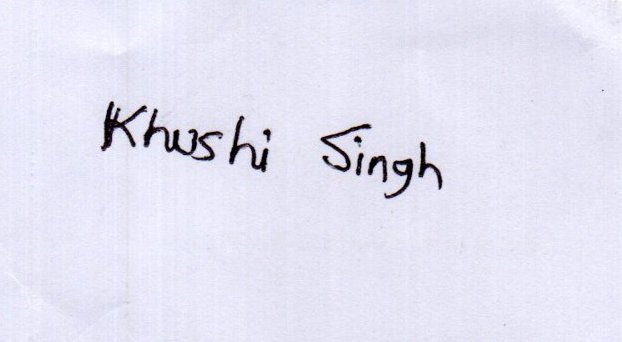 Khushi Singh